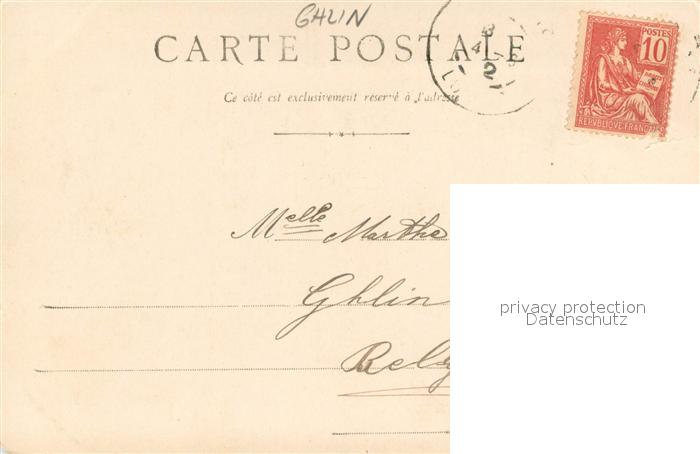 GHLIN
CARTE POSTALE
Ce côté est exclusivement réservé à l'adresse
POSTES
10
REPUBLIQUE FRANÇAISE
Melle Marthe
Ghlin
Belg
privacy protection
Datenschutz